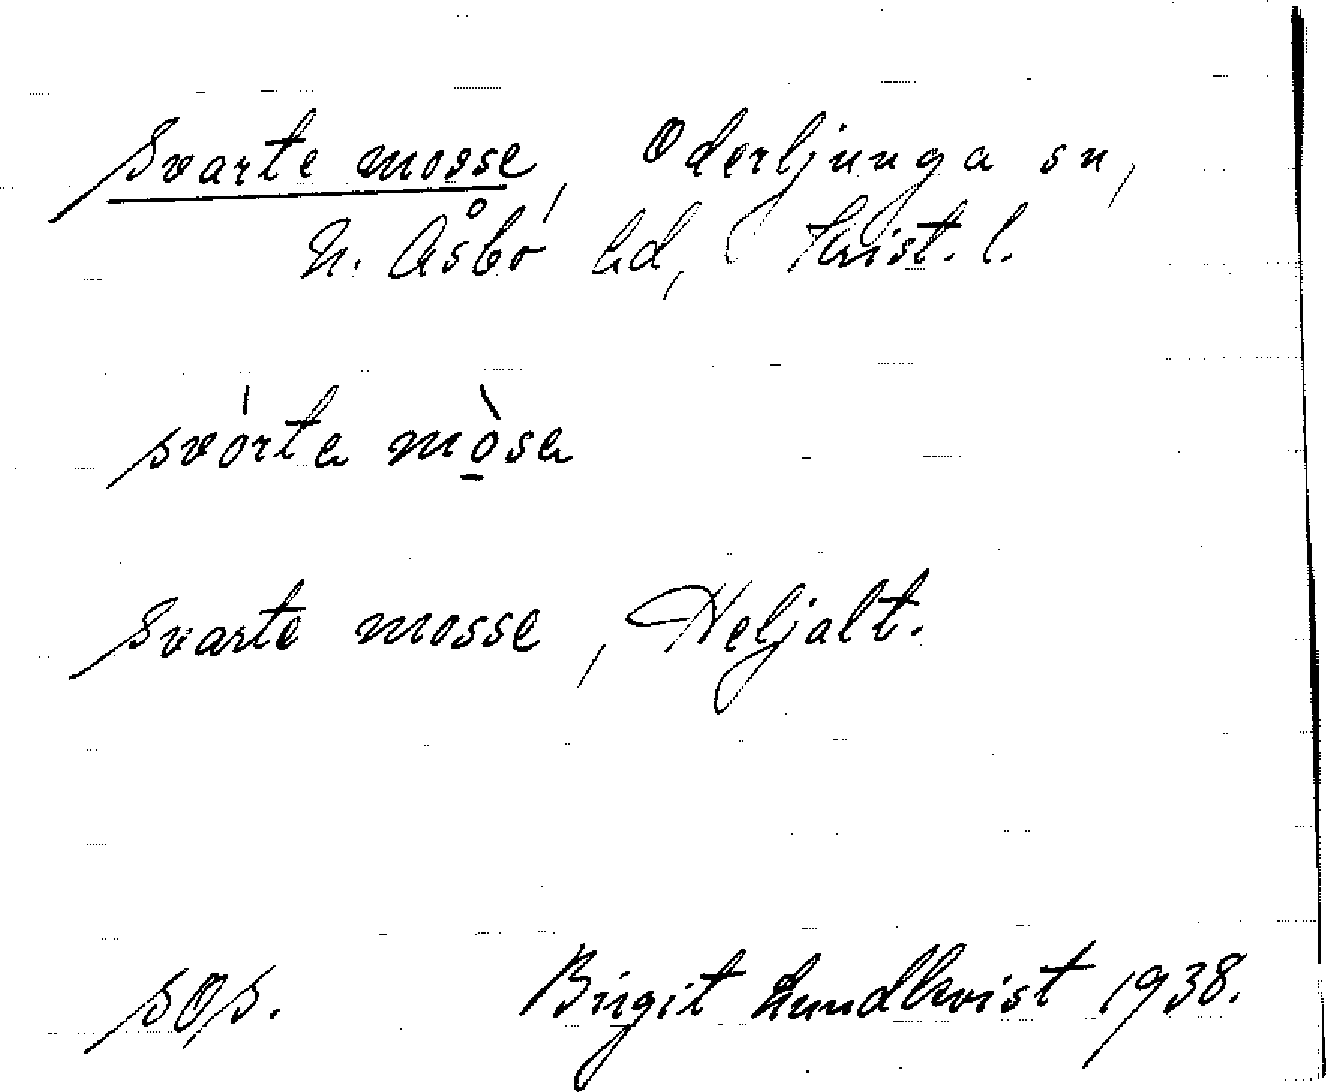 Svarte mosse, Oderljunga sn,
N. Åsbo hd, Krist. l.
svórta mòsa
Svarte mosse, Heljalt.
sgs.
Birgit Lundkvist 1938.